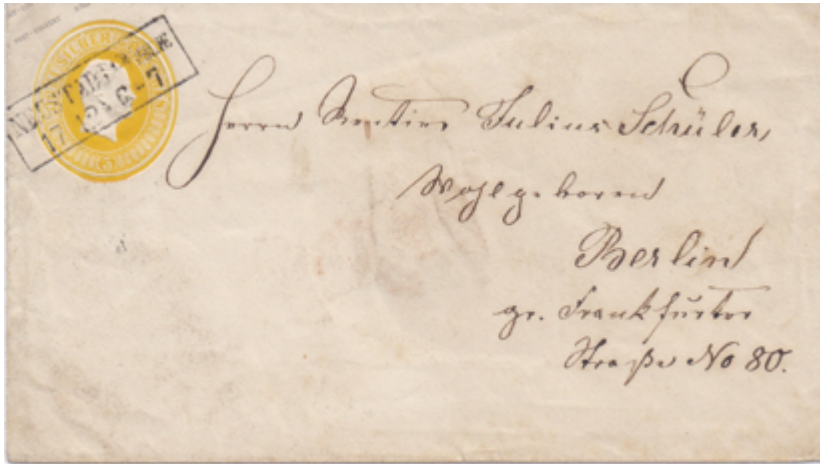 SILBER
17 12 6-7
Herrn Rentier Julius Schüler,
Wohlgeboren
Berlin
gr. Frankfurter
Straße No 80.